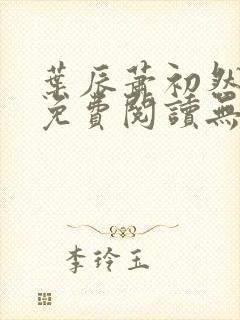 葉辰蕭初然
免費閱讀無
李玲玉